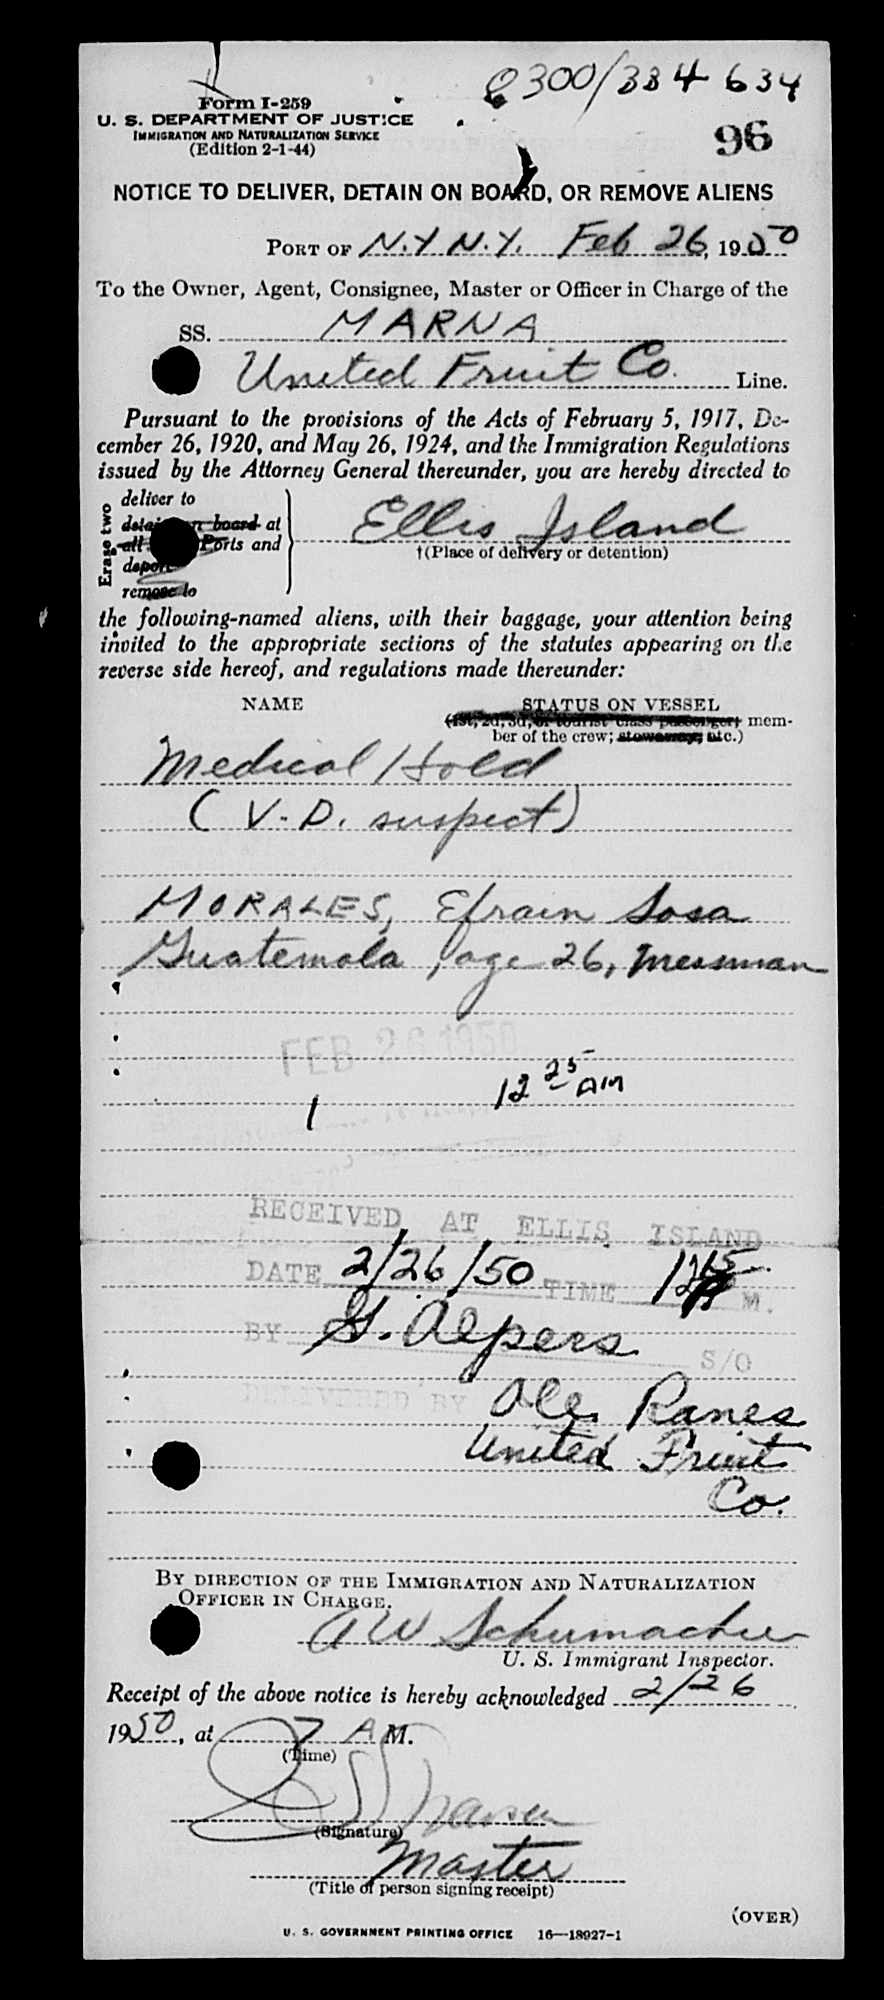 0300/334 634
Form I-259
U. S. DEPARTMENT OF JUSTICE
IMMIGRATION AND NATURALIZATION SERVICE
(Edition 2-1-44)
96
NOTICE TO DELIVER, DETAIN ON BOARD, OR REMOVE ALIENS
PORT OF N.Y N.Y. Feb 26, 1950
To the Owner, Agent, Consignee, Master or Officer in Charge of the
SS. MARNA
United Fruit Co. Line.
Pursuant to the provisions of the Acts of February 5, 1917, De-
cember 26, 1920, and May 26, 1924, and the Immigration Regulations
issued by the Attorney General thereunder, you are hereby directed to
Erase two
deliver to
detain on board at
all Ports and
deport
remove to
Ellis Island
†(Place of delivery or detention)
the following-named aliens, with their baggage, your attention being
invited to the appropriate sections of the statutes appearing on the
reverse side hereof, and regulations made thereunder:
NAME STATUS ON VESSEL
(1st, 2d, 3d, or tourist class passenger; mem-
ber of the crew; stowaway; etc.)
Medical Hold
(V.D. suspect)
MORALES, Efrain Sosa
Guatemala, age 26, Messman
FEB 26 1950
12 25 AM
1
RECEIVED AT ELLIS ISLAND
DATE 2/26/50 TIME M.
BY G. Alpers S/O
DELIVERED BY Ole Ranes
United Fruit
Co.
BY DIRECTION OF THE IMMIGRATION AND NATURALIZATION
OFFICER IN CHARGE.
A W Schumacher
U. S. Immigrant Inspector.
Receipt of the above notice is hereby acknowledged 2/26
1950, at 7 A M.
(Time)
(Signature)
Master
(Title of person signing receipt)
(OVER)
U. S. GOVERNMENT PRINTING OFFICE 16—18927-1